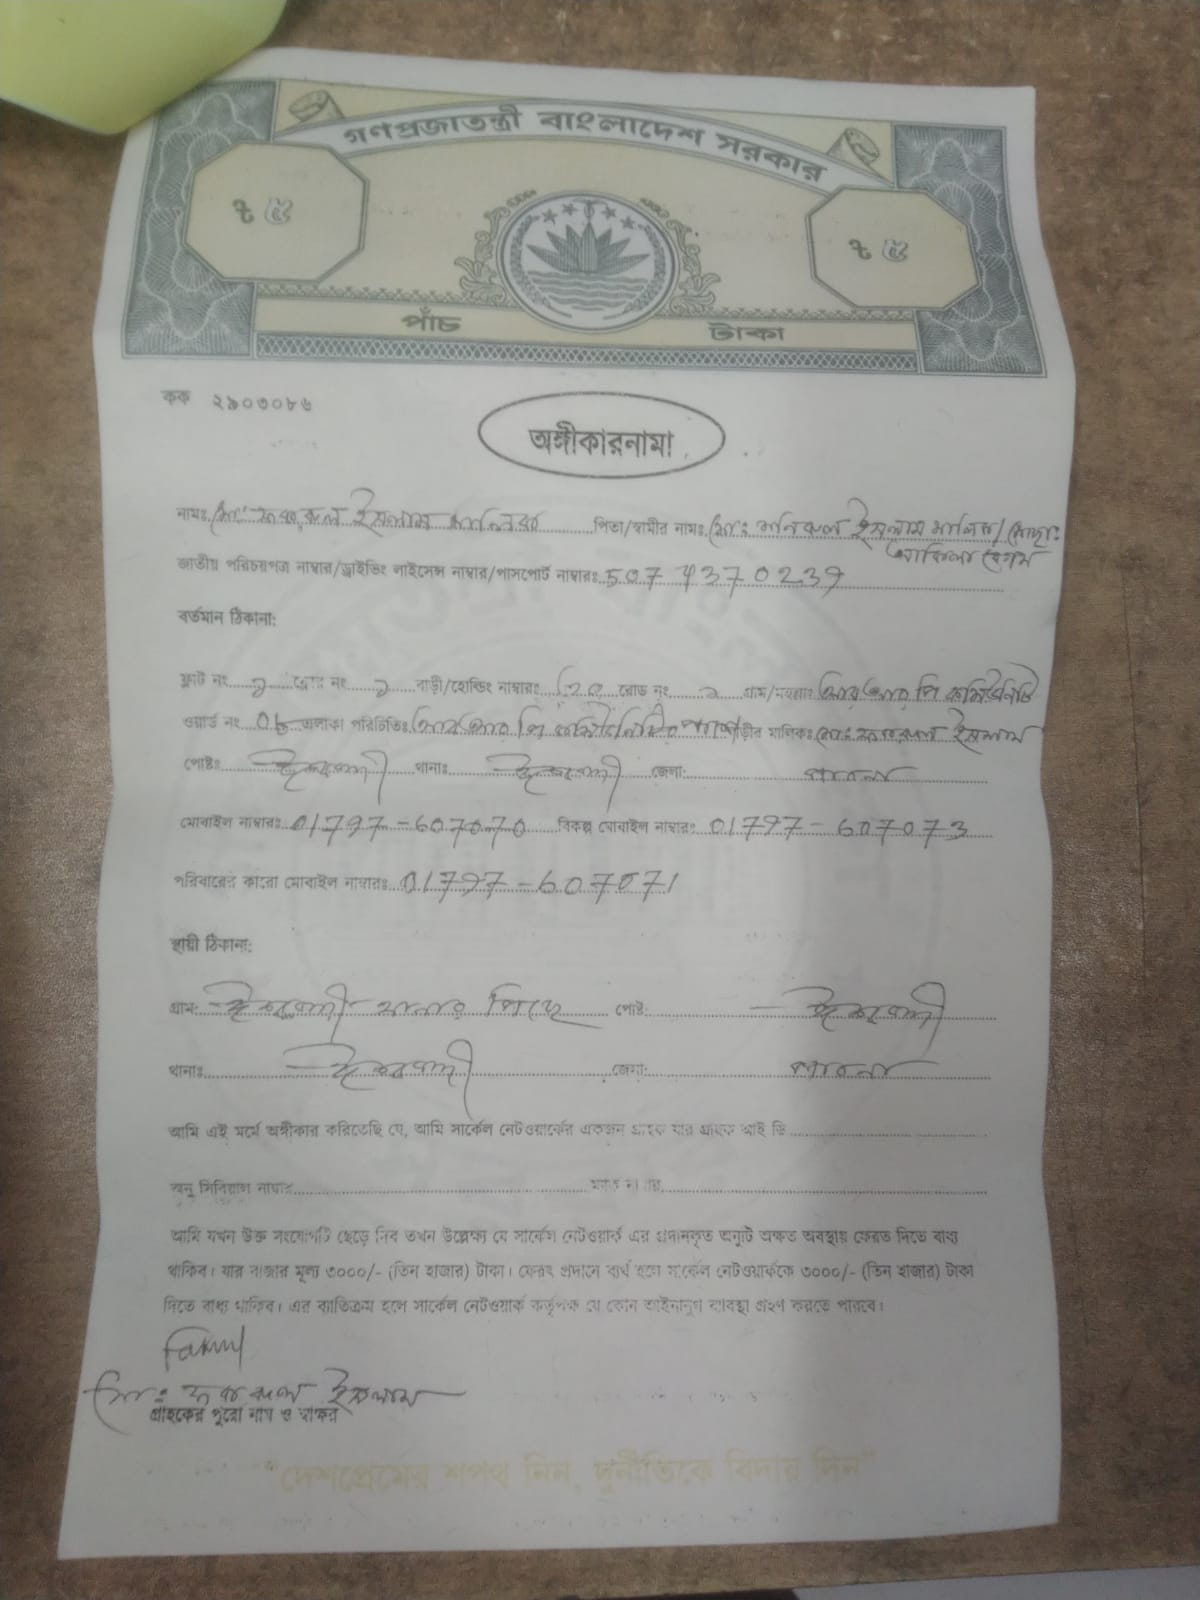 গণপ্রজাতন্ত্রী বাংলাদেশ সরকার
৳ ৫
৳ ৫
পাঁচ টাকা
কক ২৯০৩০৮৬
অঙ্গীকারনামা
নামঃ মোঃ ইসলাম মালিথা পিতা/স্বামীর নামঃ মোঃ মনিরুল ইসলাম মালিথা/মোছাঃ
বেগম
জাতীয় পরিচয়পত্র নাম্বার/ড্রাইভিং লাইসেন্স নাম্বার/পাসপোর্ট নাম্বারঃ 5074370239
বর্তমান ঠিকানা:
ফ্লাট নং বাড়ী/হোল্ডিং নাম্বারঃ রোড নং গ্রাম/মহল্লাঃ আর আর পি কমিউনিটি
ওয়ার্ড নং 06 এলাকা পরিচিতিঃ আর আর পি বাড়ীর মালিকঃ মোঃ ইসলাম
পোষ্টঃ ঈশ্বরদী থানাঃ ঈশ্বরদী জেলা: পাবনা
মোবাইল নাম্বারঃ 01797-607070 বিকল্প মোবাইল নাম্বারঃ 01797-607073
পরিবারের কারো মোবাইল নাম্বারঃ 01797-607071
স্থায়ী ঠিকানা:
গ্রাম: ঈশ্বরদী থানার পিছে পোষ্ট: ঈশ্বরদী
থানাঃ ঈশ্বরদী জেলা: পাবনা
আমি এই মর্মে অঙ্গীকার করিতেছি যে, আমি সার্কেল নেটওয়ার্কের একজন গ্রাহক যার গ্রাহক আই ডি
অনু সিরিয়াল নাম্বার
আমি যখন উক্ত সংযোগটি ছেড়ে দিব তখন উল্লেখ্য যে সার্কেল নেটওয়ার্ক এর প্রদানকৃত অনুটি অক্ষত অবস্থায় ফেরত দিতে বাধ্য
থাকিব। যার বাজার মূল্য ৩০০০/- (তিন হাজার) টাকা। ফেরৎ প্রদানে ব্যর্থ হলে সার্কেল নেটওয়ার্ককে ৩০০০/- (তিন হাজার) টাকা
দিতে বাধ্য থাকিব। এর ব্যতিক্রম হলে সার্কেল নেটওয়ার্ক কর্তৃপক্ষ যে কোন আইনানুগ ব্যবস্থা গ্রহণ করতে পারবে।
মোঃ ইসলাম
গ্রাহকের পুরো নাম ও স্বাক্ষর
"দেশপ্রেমের শপথ নিন, দুর্নীতিকে বিদায় দিন"